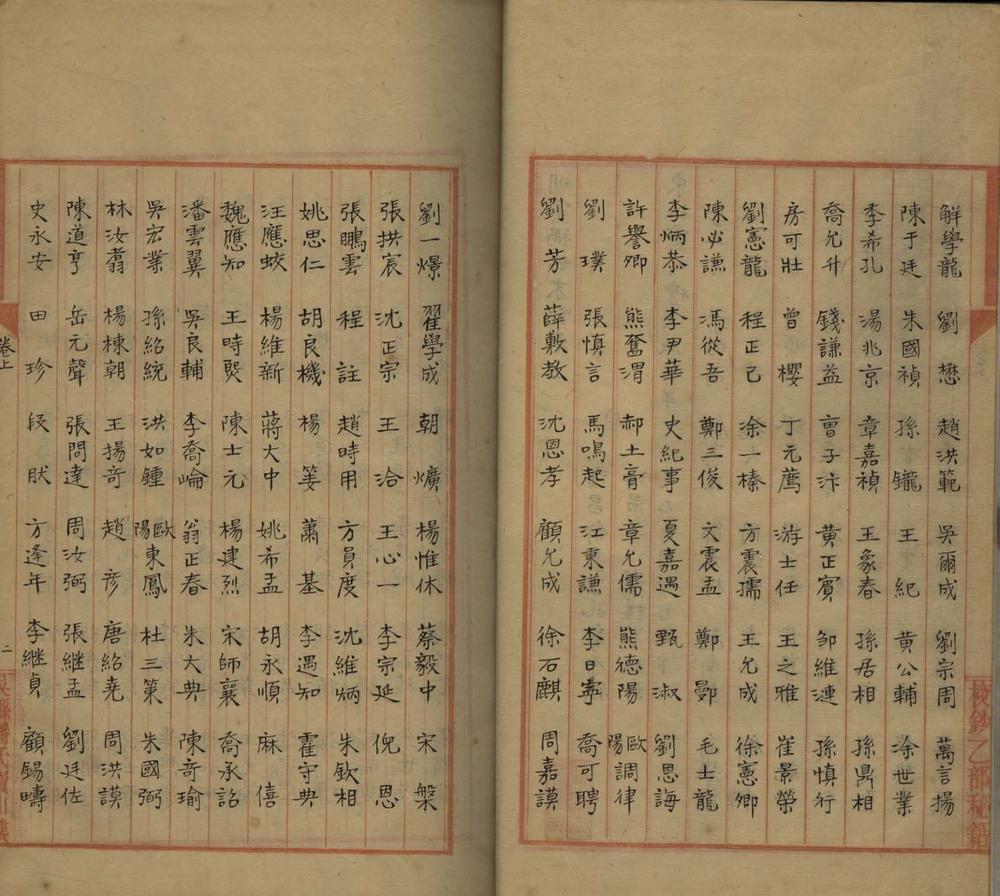 解學龍 劉懋 趙洪範 吳爾成 劉宗周 萬言揚
陳于廷 朱國禎 孫鑨 王紀 黃公輔 涂世業
李希孔 湯兆京 章嘉禎 王象春 孫居相 孫鼎相
喬允升 錢謙益 曹于汴 黃正賓 邹維漣 孫慎行
房可壯 曾櫻 丁元薦 游士任 王之雅 崔景榮
劉憲龍 程正己 涂一榛 方震孺 王允成 徐憲卿
陳必謙 馮從吾 鄭三俊 文震孟 鄭鄤 毛士龍
李炳恭 李尹華 史紀事 夏嘉遇 甄淑 劉思誨
許譽卿 熊奮渭 郝土膏 章允儒 熊德陽 歐陽調律
劉璞 張慎言 馬鳴起 江東謙 李日寧 喬可聘
劉芳 薛敷教 沈思孝 顧允成 徐石麒 周嘉謨
劉一燝 翟學成 朝爌 楊惟休 蔡毅中 宋槃
張拱宸 沈正宗 王洽 王心一 李宗延 倪思
張鵬雲 程註 趙時用 方員度 沈維炳 朱欽相
姚思仁 胡良機 楊䇹 蕭基 李遇知 霍守典
汪應蛟 楊維新 蔣大中 姚希孟 胡永順 麻僖
魏應知 王時熙 陳士元 楊建烈 宋師襄 喬承詔
潘雲翼 吳良輔 李喬崙 翁正春 朱大典 陳奇瑜
吳宏業 孫紹統 洪如鍾 歐陽東鳳 杜三策 朱國弼
林汝翥 楊棟朝 王揚奇 趙彥 唐紹堯 周洪謨
陳道亨 岳元聲 張問達 周汝弼 張繼孟 劉廷佐
史永安 田珍 段肰 方逢年 李継貞 顧錫疇
卷上
二
校鈔乙部秘籍
吳縣潘氏寶山樓